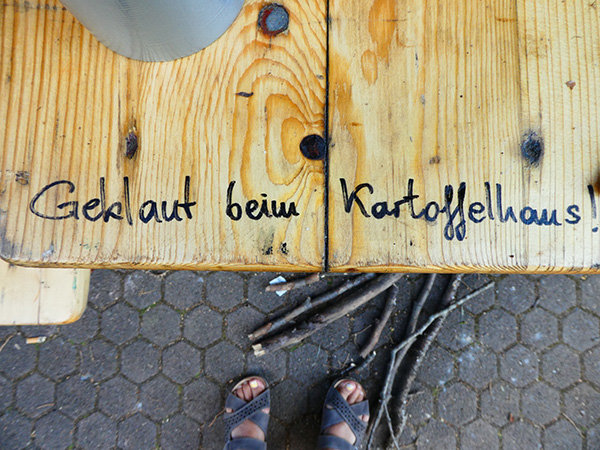 Geklaut beim Kartoffelhaus!